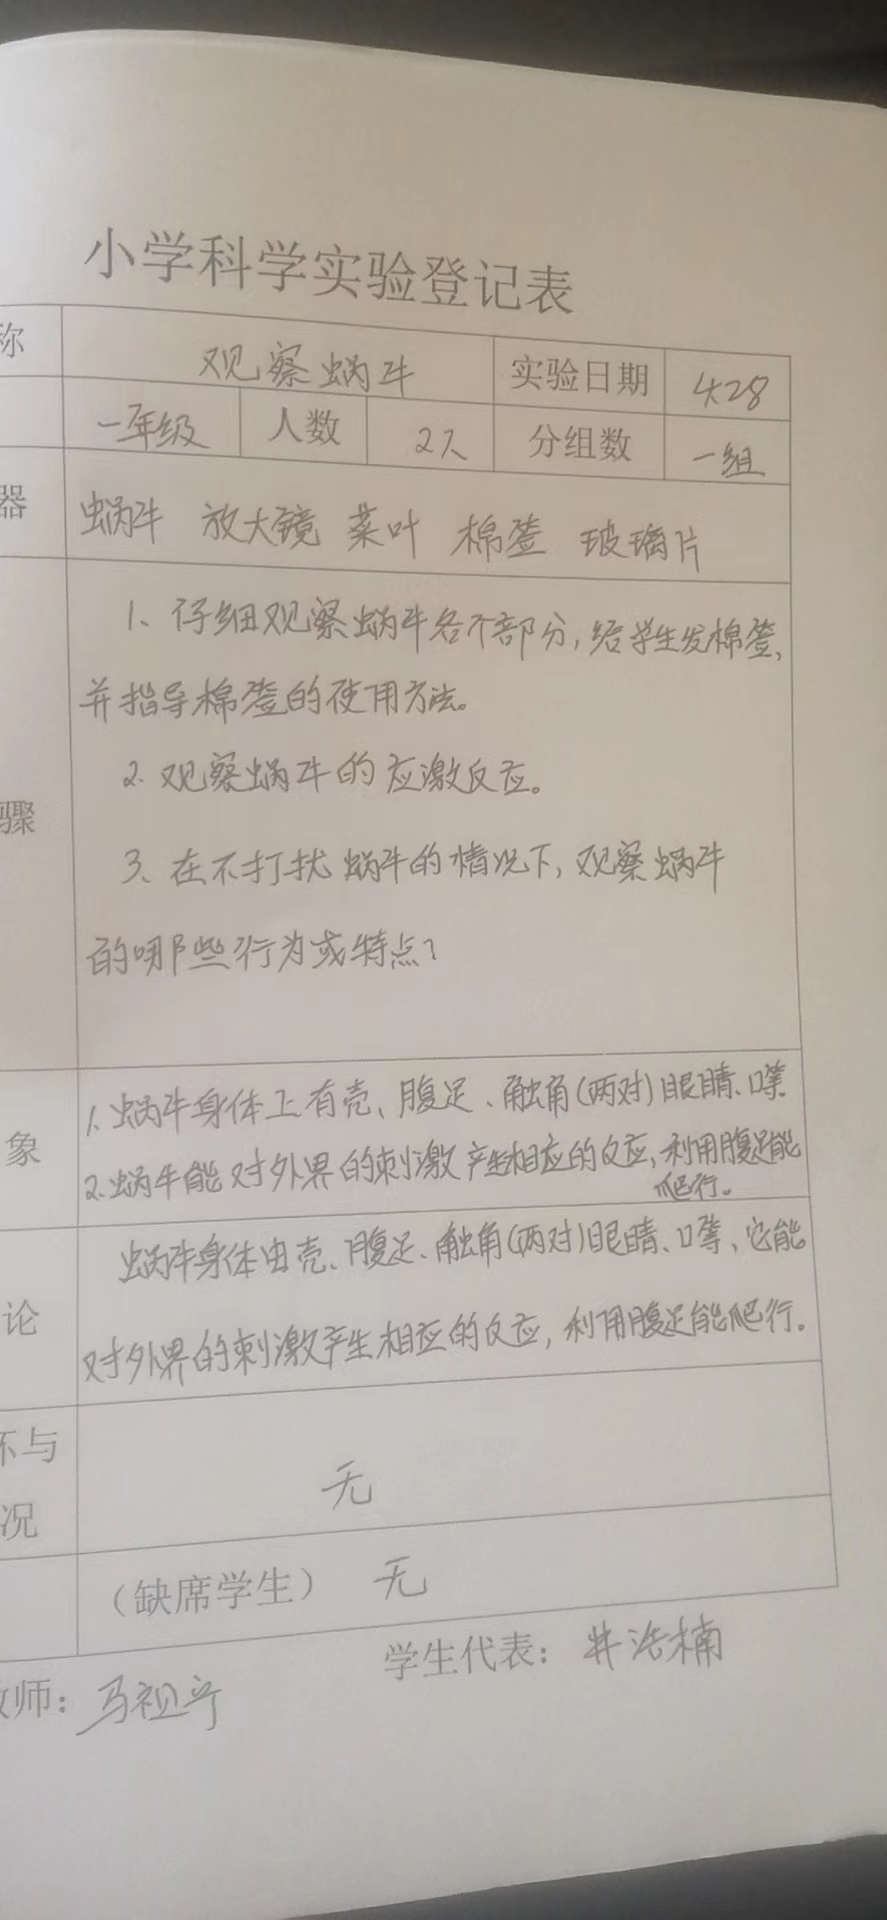 小学科学实验登记表
称 观察蜗牛 实验日期 4.28
一年级 人数 2人 分组数 一组
器 蜗牛 放大镜 菜叶 棉签 玻璃片
1、仔细观察蜗牛各个部分,给学生发棉签,
并指导棉签的使用方法。
骤
2.观察蜗牛的应激反应。
3、在不打扰蜗牛的情况下,观察蜗牛
的哪些行为或特点?
象
1.蜗牛身体上有壳、腹足、触角(两对)眼睛、口等.
2.蜗牛能对外界的刺激产生相应的反应,利用腹足能
爬行。
论
蜗牛身体由壳、腹足、触角(两对)眼睛、口等、它能
对外界的刺激产生相应的反应,利用腹足能爬行。
坏与
况 无
(缺席学生) 无
教师: 马祖 学生代表: 井浩楠